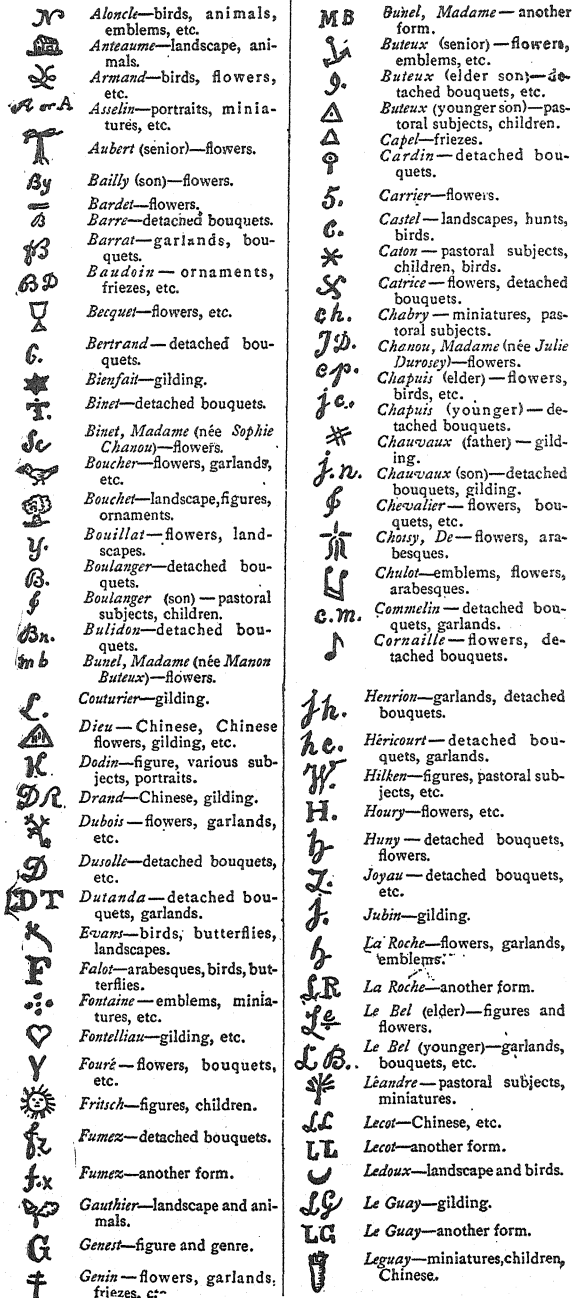 N Aloncle—birds, animals,
emblems, etc.
Anteaume—landscape, ani-
mals.
Armand—birds, flowers,
etc.
A or A Asselin—portraits, minia-
tures, etc.
Aubert (senior)—flowers.
By Bailly (son)—flowers.
Bardet—flowers.
B Barre—detached bouquets.
B Barrat—garlands, bou-
quets.
BD Baudoin—ornaments,
friezes, etc.
Becquet—flowers, etc.
6. Bertrand—detached bou-
quets.
Bienfait—gilding.
T. Binet—detached bouquets.
Sc Binet, Madame (née Sophie
Chanou)—flowers.
Boucher—flowers, garlands,
etc.
Bouchet—landscape, figures,
ornaments.
Y. Bouillat—flowers, land-
scapes.
B. Boulanger—detached bou-
quets.
Boulanger (son)—pastoral
subjects, children.
Bn. Bulidon—detached bou-
quets.
m b Bunel, Madame (née Manon
Buteux)—flowers.
L. Couturier—gilding.
Dieu—Chinese, Chinese
flowers, gilding, etc.
K. Dodin—figure, various sub-
jects, portraits.
DR Drand—Chinese, gilding.
Dubois—flowers, garlands,
etc.
D Dusolle—detached bouquets,
etc.
DT Dutanda—detached bou-
quets, garlands.
Evans—birds, butterflies,
landscapes.
F Falot—arabesques, birds, but-
terflies.
Fontaine—emblems, minia-
tures, etc.
Fontelliau—gilding, etc.
Y Fouré—flowers, bouquets,
etc.
Fritsch—figures, children.
fz Fumez—detached bouquets.
f.x Fumez—another form.
Gauthier—landscape and ani-
mals.
G Genest—figure and genre.
Genin—flowers, garlands,
friezes,
MB Bunel, Madame—another
form.
Buteux (senior)—flowers,
emblems, etc.
9. Buteux (elder son)—de-
tached bouquets, etc.
Buteux (younger son)—pas-
toral subjects, children.
Capel—friezes.
Cardin—detached bou-
quets.
5. Carrier—flowers.
C. Castel—landscapes, hunts,
birds.
Caton—pastoral subjects,
children, birds.
Catrice—flowers, detached
bouquets.
ch. Chabry—miniatures, pas-
toral subjects.
JD. Chanou, Madame (née Julie
Durosey)—flowers.
c.p. Chapuis (elder)—flowers,
birds, etc.
j.c. Chapuis (younger)—de-
tached bouquets.
Chauvaux (father)—gild-
ing.
j.n. Chauvaux (son)—detached
bouquets, gilding.
Chevalier—flowers, bou-
quets, etc.
Choisy, De—flowers, ara-
besques.
Chulot—emblems, flowers,
arabesques.
c.m. Commelin—detached bou-
quets, garlands.
Cornaille—flowers, de-
tached bouquets.
Jh. Henrion—garlands, detached
bouquets.
hc. Héricourt—detached bou-
quets, garlands.
W. Hilken—figures, pastoral sub-
jects, etc.
H. Houry—flowers, etc.
h Huny—detached bouquets,
flowers.
Z. Joyau—detached bouquets,
etc.
j. Jubin—gilding.
La Roche—flowers, garlands,
emblems.
LR La Roche—another form.
Le Le Bel (elder)—figures and
flowers.
LB.. Le Bel (younger)—garlands,
bouquets, etc.
Léandre—pastoral subjects,
miniatures.
LL Lecot—Chinese, etc.
LL Lecot—another form.
Ledoux—landscape and birds.
LG Le Guay—gilding.
LG Le Guay—another form.
Leguay—miniatures, children,
Chinese.